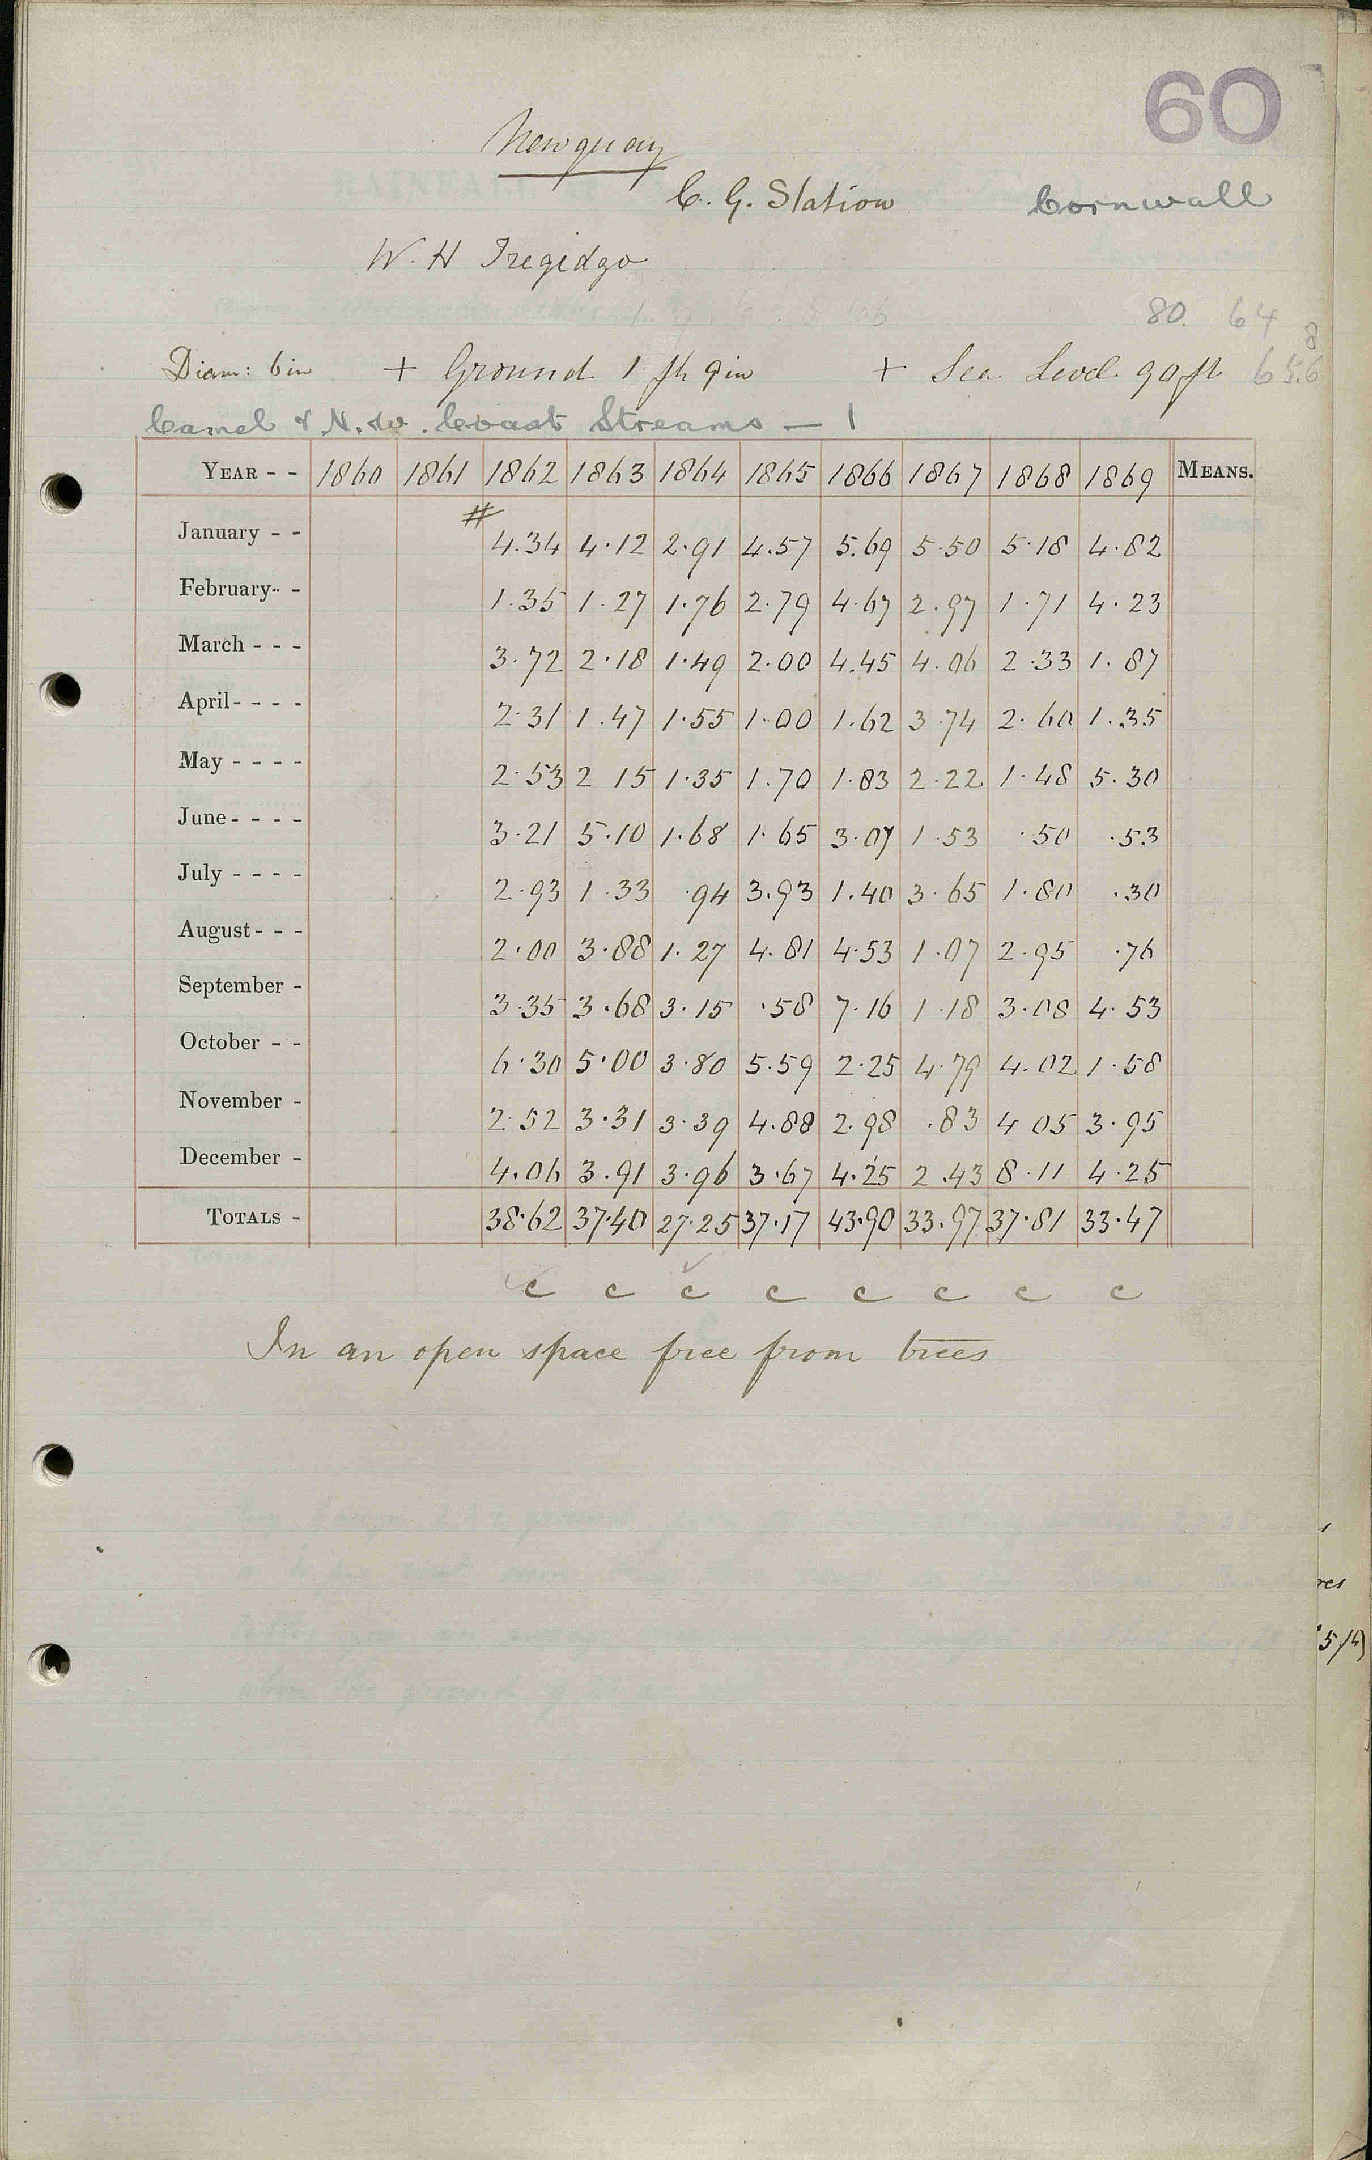 60
Newquay
C. G. Station Cornwall
W. H Tregidgo
80. 64
Diam: 6 in + Ground 1 ft 9 in + Sea Level 90 ft
Camel & N. W. Coast Streams — 1
YEAR - - 1860 1861 1862 1863 1864 1865 1866 1867 1868 1869 MEANS.
January - - # 4.34 4.12 2.91 4.57 5.69 5.50 5.18 4.82
February - - 1.35 1.27 1.76 2.79 4.67 2.97 1.71 4.23
March - - - 3.72 2.18 1.49 2.00 4.45 4.06 2.33 1.87
April - - - - 2.31 1.47 1.55 1.00 1.62 3.74 2.60 1.35
May - - - - 2.53 2 15 1.35 1.70 1.83 2.22 1.48 5.30
June - - - - 3.21 5.10 1.68 1.65 3.07 1.53 .50 .53
July - - - - 2.93 1.33 .94 3.93 1.40 3.65 1.80 .30
August - - - 2.00 3.88 1.27 4.81 4.53 1.07 2.95 .76
September - 3.35 3.68 3.15 .58 7.16 1.18 3.08 4.53
October - - 6.30 5.00 3.80 5.59 2.25 4.79 4.02 1.58
November - 2.52 3.31 3.39 4.88 2.98 .83 4 05 3.95
December - 4.06 3.91 3.96 3.67 4.25 2.43 8.11 4.25
TOTALS - 38.62 37.40 27.25 37.17 43.90 33.97 37.81 33.47
c c c c c c c c
In an open space free from trees